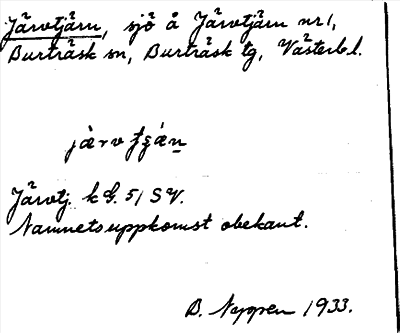 Järvtjärn, sjö å Järvtjärn nr 1,
Burträsk sn, Burträsk tg, Västerb.l.
Järvtj. kG. 51 SV.
Namnets uppkomst obekant.
B. Nygren 1933.